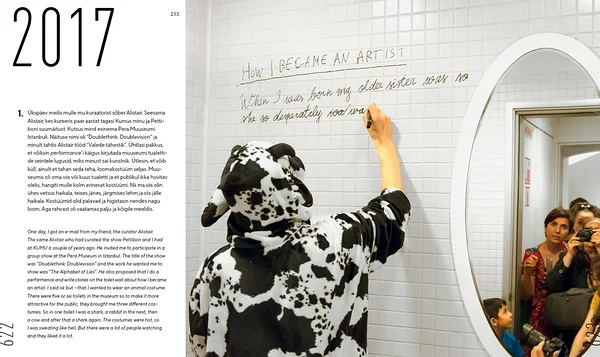 2017
233.
HOW I BECAME AN ARTIST
When I was born my older sister was so
she so desperately
1. Ükspäev meilis mulle mu kuraatorist sõber Alistair. Seesama
Alistair, kes kureeris paar aastat tagasi Kumus minu ja Petti-
boni suurnäitust. Kutsus mind esinema Pera Muuseumi
Istanbuli. Näituse nimi oli "Doublethink: Doublevision" ja
minult tahtis Alistair tööd "Valede tähestik". Ühtlasi pakkus,
et võiksin performance'i käigus kirjutada muuseumi tualetti-
de seintele lugusid, miks minust sai kunstnik. Ütlesin, et võib
küll, ainult et tahan seda teha, loomakostüüm seljas. Muu-
seumis oli oma viis või kuus tualetti ja et publikul ikka huvitav
oleks, hangiti mulle kolm erinevat kostüümi. Nii ma siis olin
ühes vetsus haikala, teises jänes, järgmises lehm ja siis jälle
haikala. Kostüümid olid palavad ja higistasin nendes nagu
loom. Aga rahvast oli vaatamas palju ja kõigile meeldis.
One day, I got an e-mail from my friend, the curator Alistair.
The same Alistair who had curated the show Pettibon and I had
at KUMU a couple of years ago. He invited me to participate in a
group show at the Pera Museum in Istanbul. The title of the show
was "Doublethink: Doublevision" and the work he wanted me to
show was "The Alphabet of Lies". He also proposed that I do a
performance and write stories on the toilet wall about how I became
an artist. I said ok but - that I wanted to wear an animal costume.
There were five or six toilets in the museum so to make it more
attractive for the public, they brought me three different cos-
tumes. So in one toilet I was a shark, a rabbit in the next, then
a cow and after that a shark again. The costumes were hot, so
I was sweating like hell. But there were a lot of people watching
and they liked it a lot.
622